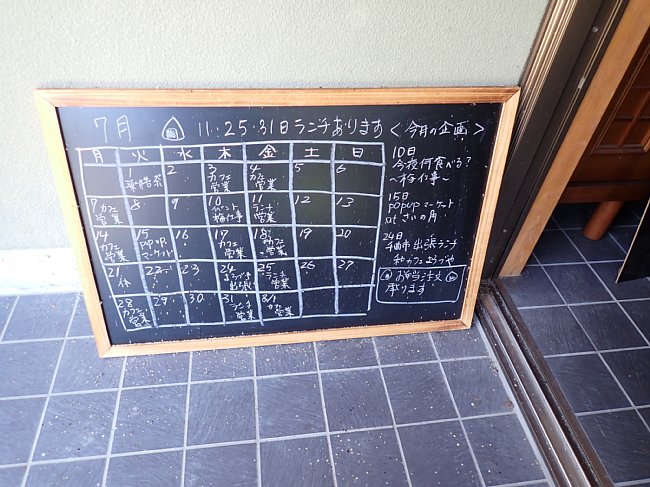 7月 11・25・31日ランチあります <今月の企画>
月 火 水 木 金 土 日
1 2 3 カフェ営業 4 カフェ営業 5 6
7 カフェ営業 8 9 10 イベント 梅仕事 11 ランチ営業 12 13
14 カフェ営業 15 POPUPマーケット 16 17 カフェ営業 18 カフェ営業 19 20
21 休 22 23 24 出張 25 ランチ営業 26 27
28 カフェ営業 29 30 31 ランチ営業 8/1 カフェ営業
10日
今夜何食べる?
〜梅仕事〜
15日
POPUPマーケット
at さいの角
24日
千曲市 出張ランチ
お弁当注文
承ります